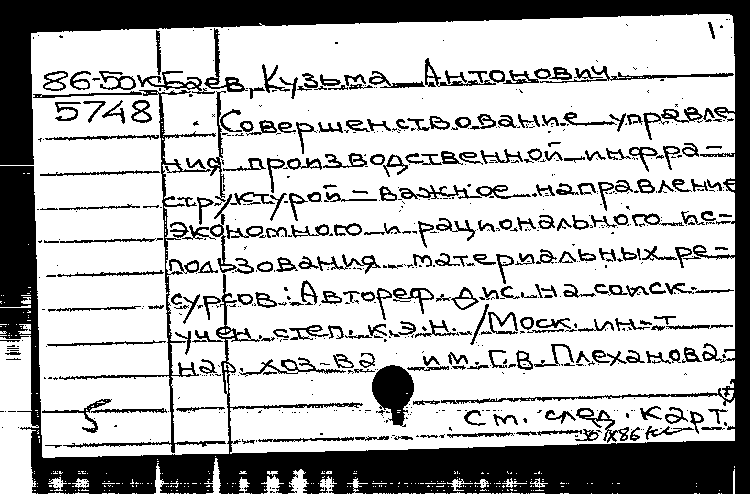 1.
86-50к Баев, Кузьма Антонович.
5748
Совершенствование управле-
ния производственной инфра-
структурой – важное направление
экономного и рационального ис-
пользования материальных ре-
сурсов: Автореф. дис. на соиск.
учен. степ. к.э.н. / Моск. ин-т
нар. хоз-ва им. Г.В. Плеханова.-
5
См. след. карт.